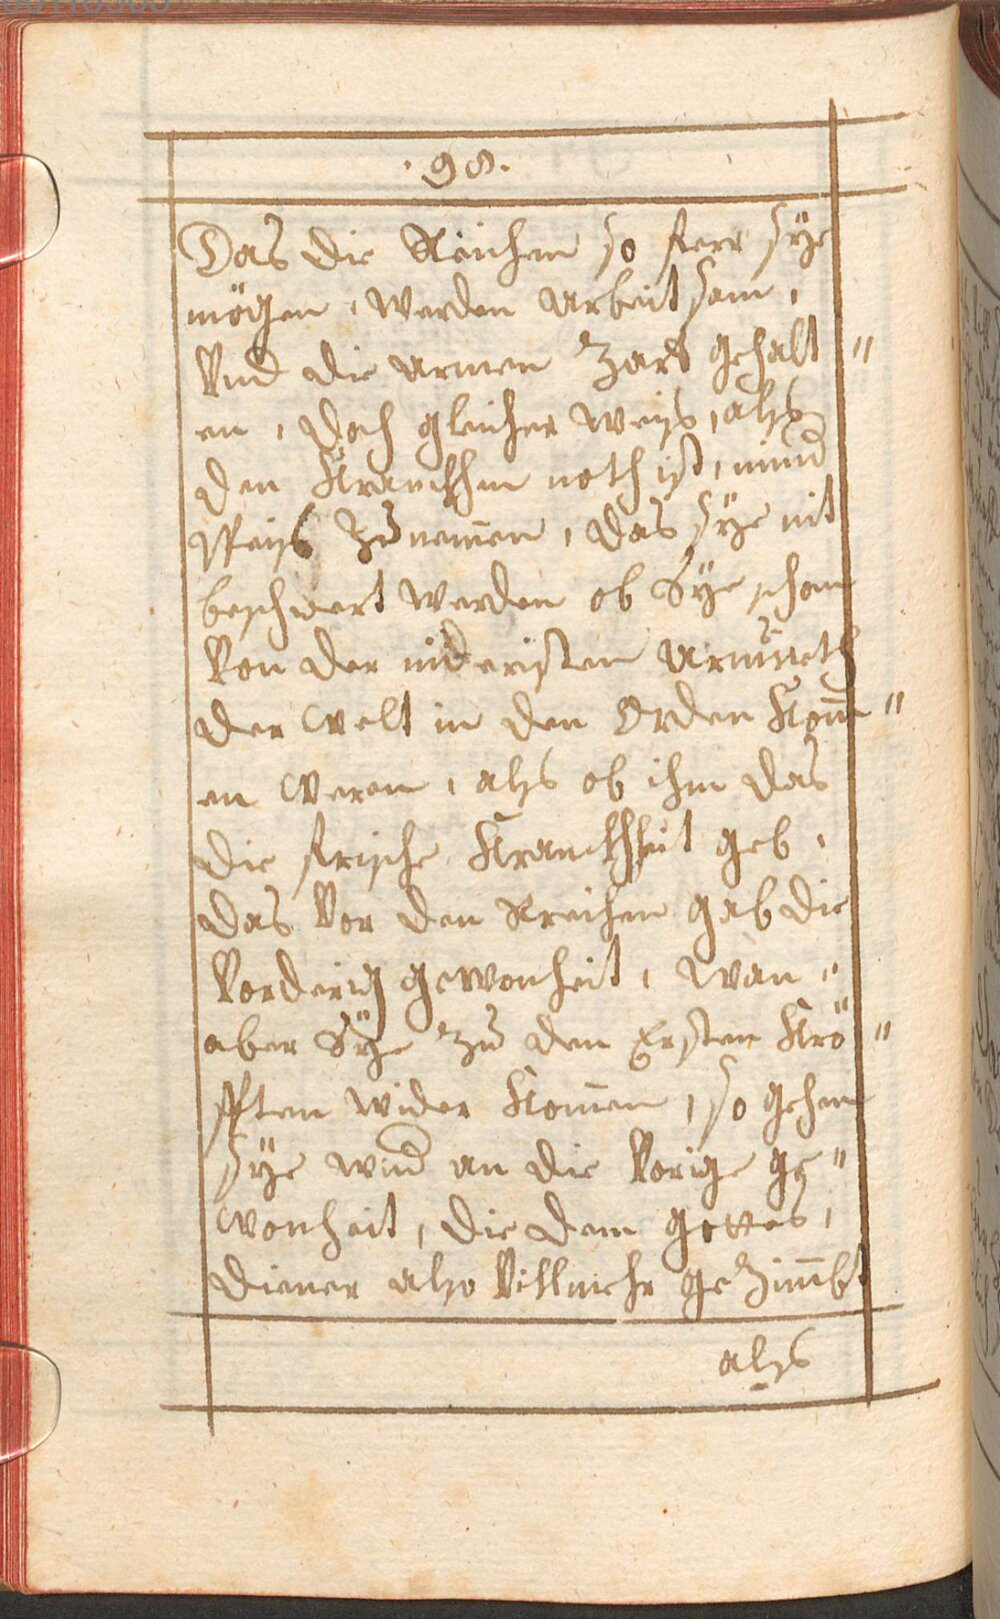 ·98·
Das die Reichen so ferr sÿe
mögen, werden arbeitsam,
Vnd die armen zart gehalt"
en, doch gleicher weis, alß
den Kranckhen noth ist, mind
speiß zu nem̄en, das sÿe nit
beschwert werden ob Sÿe schon
Von der nideristen armueth
der welt in den Orden Kom̄"
en weren, alß ob ihm das
die frische Kranckheit geb,
das Vor den Reichen gab die
Vorderig gewonheit, wan"
aber Sÿe zu den Ersten Krö"
fften wider Kom̄en, so gehen
Sÿe wid an die Vorige ge"
wonheit, die dem gottes,
diener also Villmehr geZim̄bt
alß